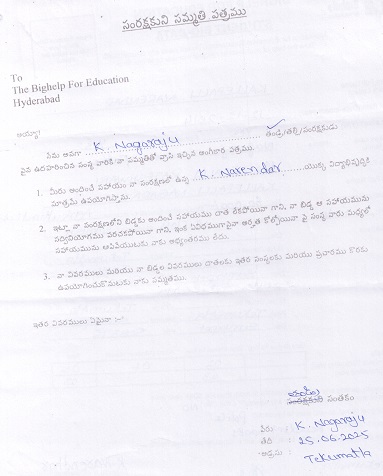 సంరక్షకుని సమ్మతి పత్రము
To
The Bighelp For Education
Hyderabad
అయ్యా!
నేను అనగా K. Nagaraju తండ్రి/తల్లి/సంరక్షకుడు
పైన ఉదహరించిన సంస్థ వారికి నా సమ్మతితో వ్రాసి ఇచ్చిన అంగీకార పత్రము.
1. మీరు అందించే సహాయం నా సంరక్షణలో ఉన్న K. Narendar యొక్క విద్యాభివృద్ధికి
మాత్రమే ఉపయోగిస్తాను.
2. ఇట్లా నా సంరక్షణలోని బిడ్డకు అందించే సహాయము దాత లేకపోయినా గాని, నా బిడ్డ ఆ సహాయమును
సద్వినియోగము పరచకపోయినా గాని, ఇంక ఏవిధముగానైనా అర్హత కోల్పోయినా పై సంస్థ వారు మధ్యలో
సహాయమును ఆపివేయుటకు నాకు అభ్యంతరము లేదు.
3. నా వివరములు మరియు నా బిడ్డల వివరములు దాతలకు ఇతర సంస్థలకు మరియు ప్రచారము కొరకు
ఉపయోగించుకొనుటకు నాకు సమ్మతము.
ఇతర వివరములు ఏమైనా :-
సంరక్షకుని సంతకం
పేరు : K. Nagaraju
తేది : 25.06.2025
అడ్రసు : Tekumatla